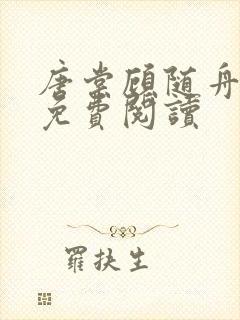 唐棠顾随舟
免費閱讀
羅扶生